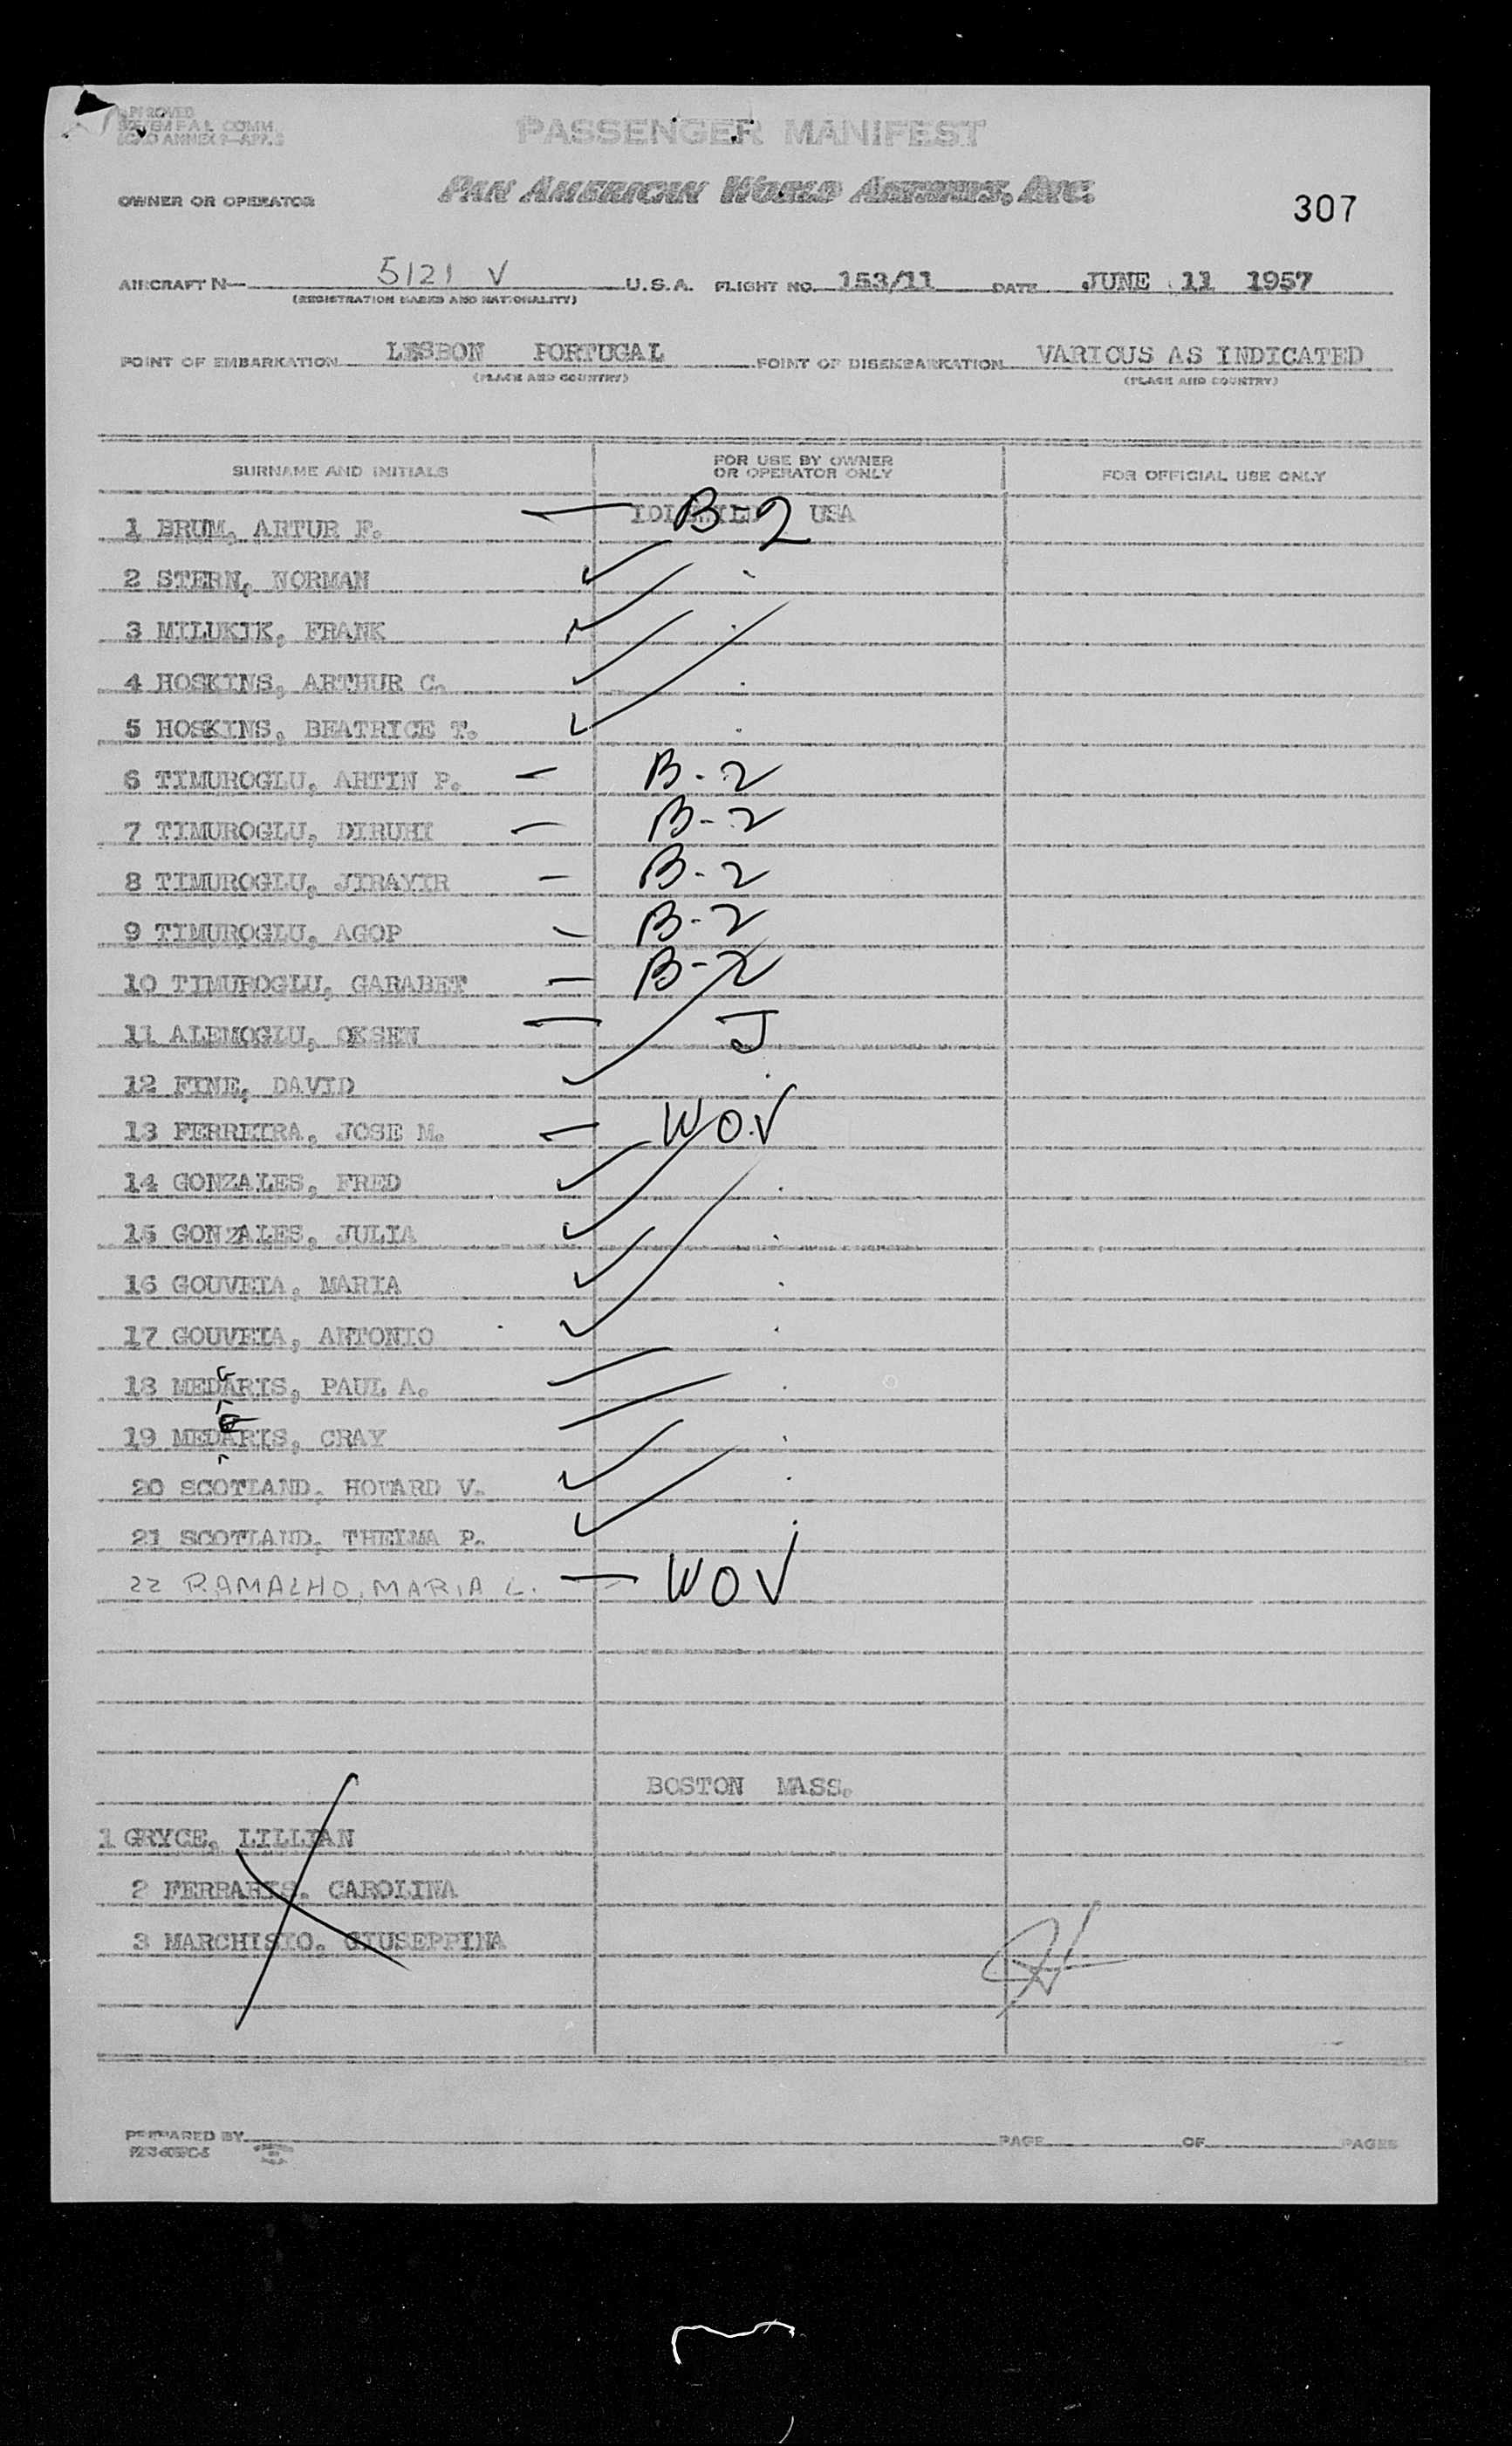 APPROVED
FAL COMM.
ICAO ANNEX 9—APP. 3
PASSENGER MANIFEST
OWNER OR OPERATOR PAN AMERICAN WORLD AIRWAYS, INC.
307
AIRCRAFT N— 5121 V U.S.A. FLIGHT NO. 153/11 DATE JUNE 11 1957
(REGISTRATION MARKS AND NATIONALITY)
POINT OF EMBARKATION LESBON PORTUGAL POINT OF DISEMBARKATION VARIOUS AS INDICATED
(PLACE AND COUNTRY) (PLACE AND COUNTRY)
SURNAME AND INITIALS FOR USE BY OWNER OR OPERATOR ONLY FOR OFFICIAL USE ONLY
IDLEWILD USA
1 BRUM, ARTUR F. — B-2
2 STERN, NORMAN ✓
3 MILUKIK, FRANK ✓
4 HOSKINS, ARTHUR C. ✓
5 HOSKINS, BEATRICE T. ✓
6 TIMUROGLU, ARTIN P. — B-2
7 TIMUROGLU, DIRUHI — B-2
8 TIMUROGLU, JIRAYIR — B-2
9 TIMUROGLU, AGOP — B-2
10 TIMUROGLU, GARABET — B-2
11 ALEMOGLU, OKSEN — J
12 FINE, DAVID ✓
13 FERREIRA, JOSE M. — WOV
14 GONZALES, FRED ✓
15 GONZALES, JULIA ✓
16 GOUVEIA, MARIA ✓
17 GOUVEIA, ANTONIO ✓
18 MEDARIS, PAUL A. —
19 MEDARIS, CRAY —
20 SCOTLAND, HOWARD V. ✓
21 SCOTLAND, THELMA P. ✓
22 RAMALHO, MARIA L. — WOV
BOSTON MASS.
1 GRYCE, LILLIAN
2 FERRARIS, CAROLINA
3 MARCHISIO, GIUSEPPINA
PREPARED BY PAGE OF PAGES